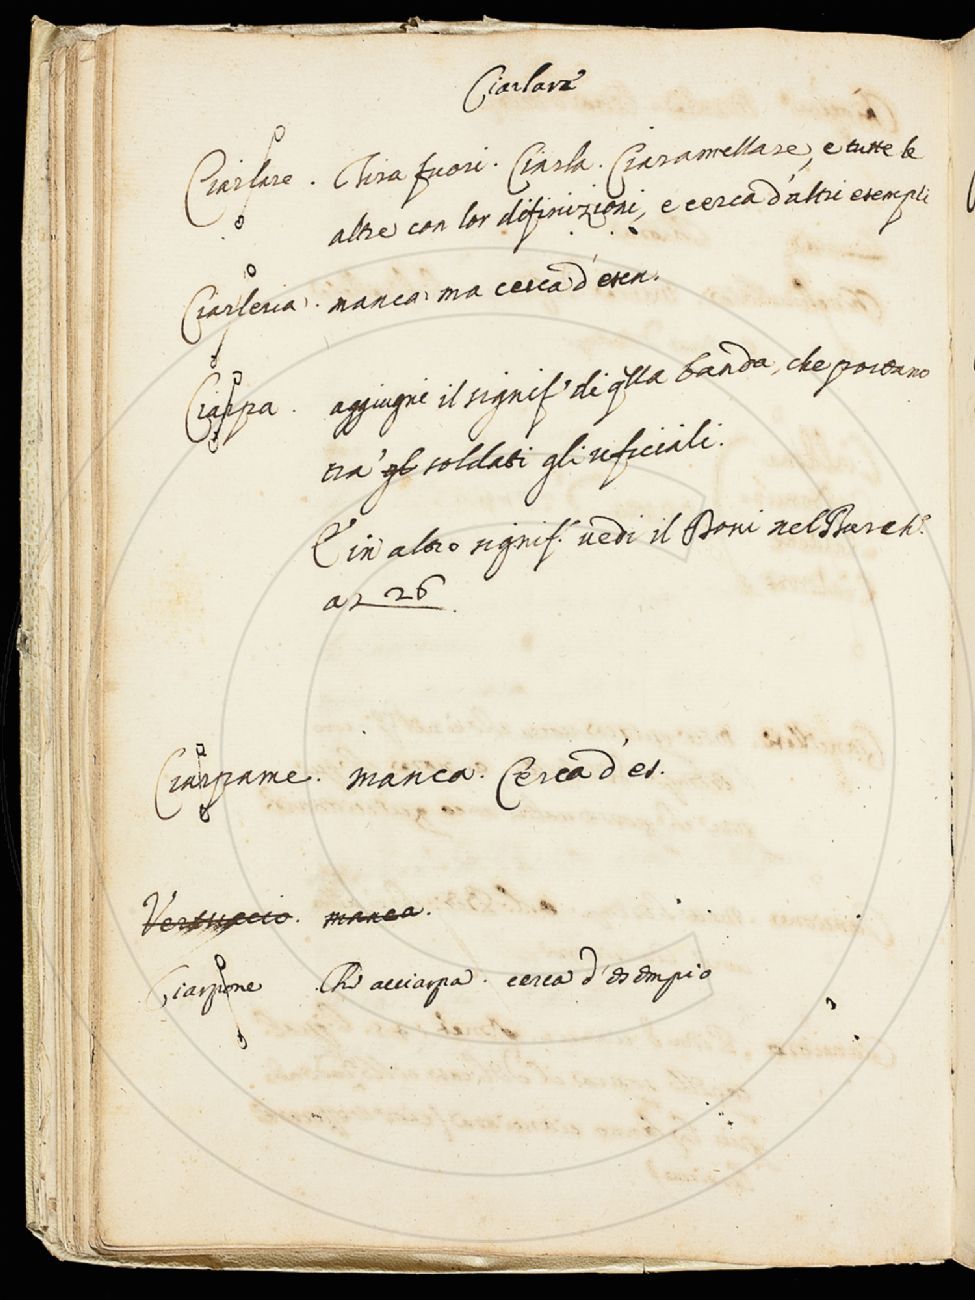 Ciarlare
Ciarlare. Tira fuori. Ciarla. Ciaramellare, e tutte le
altre con lor difinizioni, e cerca d'altri esempli
Ciarleria. manca: ma cerca d'esem.
Ciarpa. aggiugni il signif.º di q̃lla banda, che portano
tra' gl soldati gli uficiali.
E in altro signif.º uedi il Boni nel Burch.º
a 26.
Ciarpame. manca. Cerca d'es.
Vertuccio. manca.
Ciarpone Chi acciarpa. cerca d'esempio